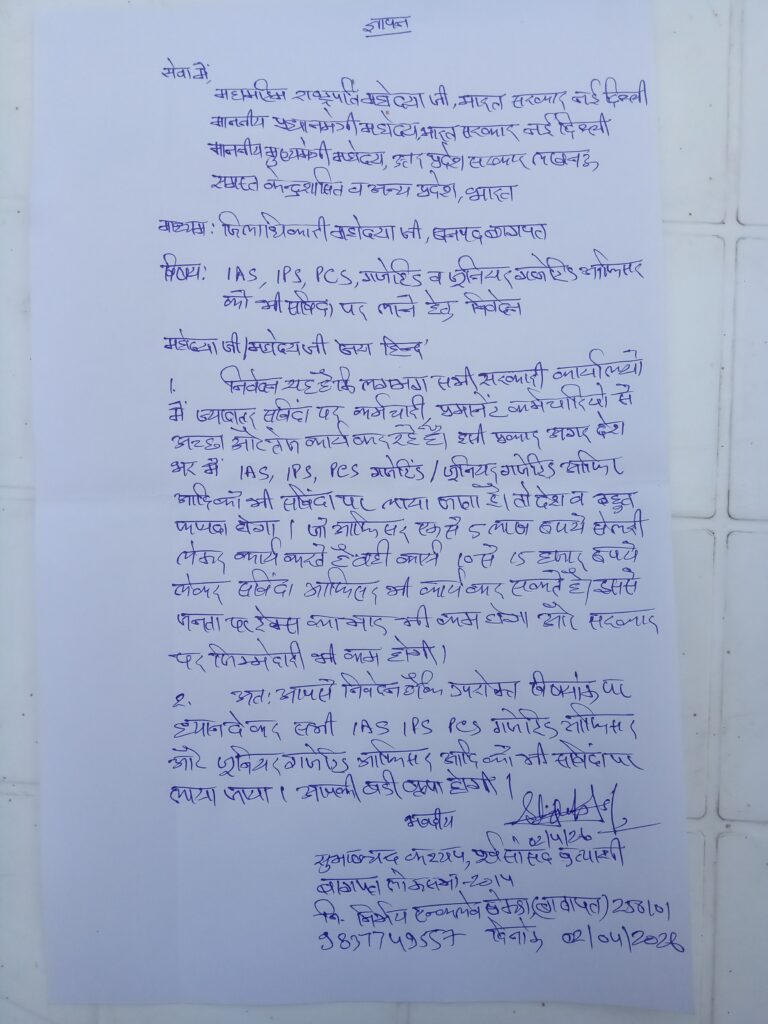 ज्ञापन
सेवा में,
महामहिम राष्ट्रपति महोदया जी, भारत सरकार नई दिल्ली
माननीय प्रधानमंत्री महोदय, भारत सरकार नई दिल्ली
माननीय मुख्यमंत्री महोदय, उत्तर प्रदेश सरकार लखनऊ
समस्त केन्द्रशासित व अन्य प्रदेश, भारत
माध्यम: जिलाधिकारी महोदया जी, जनपद बागपत
विषय: IAS, IPS, PCS, गजेटिड व जूनियर गजेटिड आफिसर
को भी संविदा पर लाने हेतु निवेदन
महोदया जी/महोदय जी जय हिन्द
1. निवेदन यह है कि लगभग सभी सरकारी कार्यालयों
में ज्यादातर संविदा पर कर्मचारी, प्रमानेंट कर्मचारियों से
अच्छा और तेज कार्य कर रहे है। इसी प्रकार अगर देश
भर में IAS, IPS, PCS गजेटिड / जूनियर गजेटिड आफिसर
आदि को भी संविदा पर लाया जाता है। तो देश व बहुत
फायदा होगा। जो आफिसर एक से 5 लाख रुपये सेलरी
लेकर कार्य करते है वही कार्य 10 से 15 हजार रुपये
लेकर संविदा आफिसर भी कार्य कर सकते है। इससे
जनता पर टेक्स का भार भी कम होगा और सरकार
पर जिम्मेदारी भी कम होगी।
2. अत: आपसे निवेदन है कि उपरोक्त विषयांक पर
ध्यान देकर सभी IAS IPS PCS गजेटिड आफिसर
और जूनियर गजेटिड आफिसर आदि को भी संविदा पर
लाया जाया। आपकी बडी कृपा होगी।
भवदीय
02/4/26
सुभाषचन्द कश्यप, पूर्व सांसद प्रत्याशी
बागपत लोकसभा-2014
नि. निर्भय इन्कलेव खेकड़ा (बागपत) 250101
9837749557 दिनांक 02/04/2026